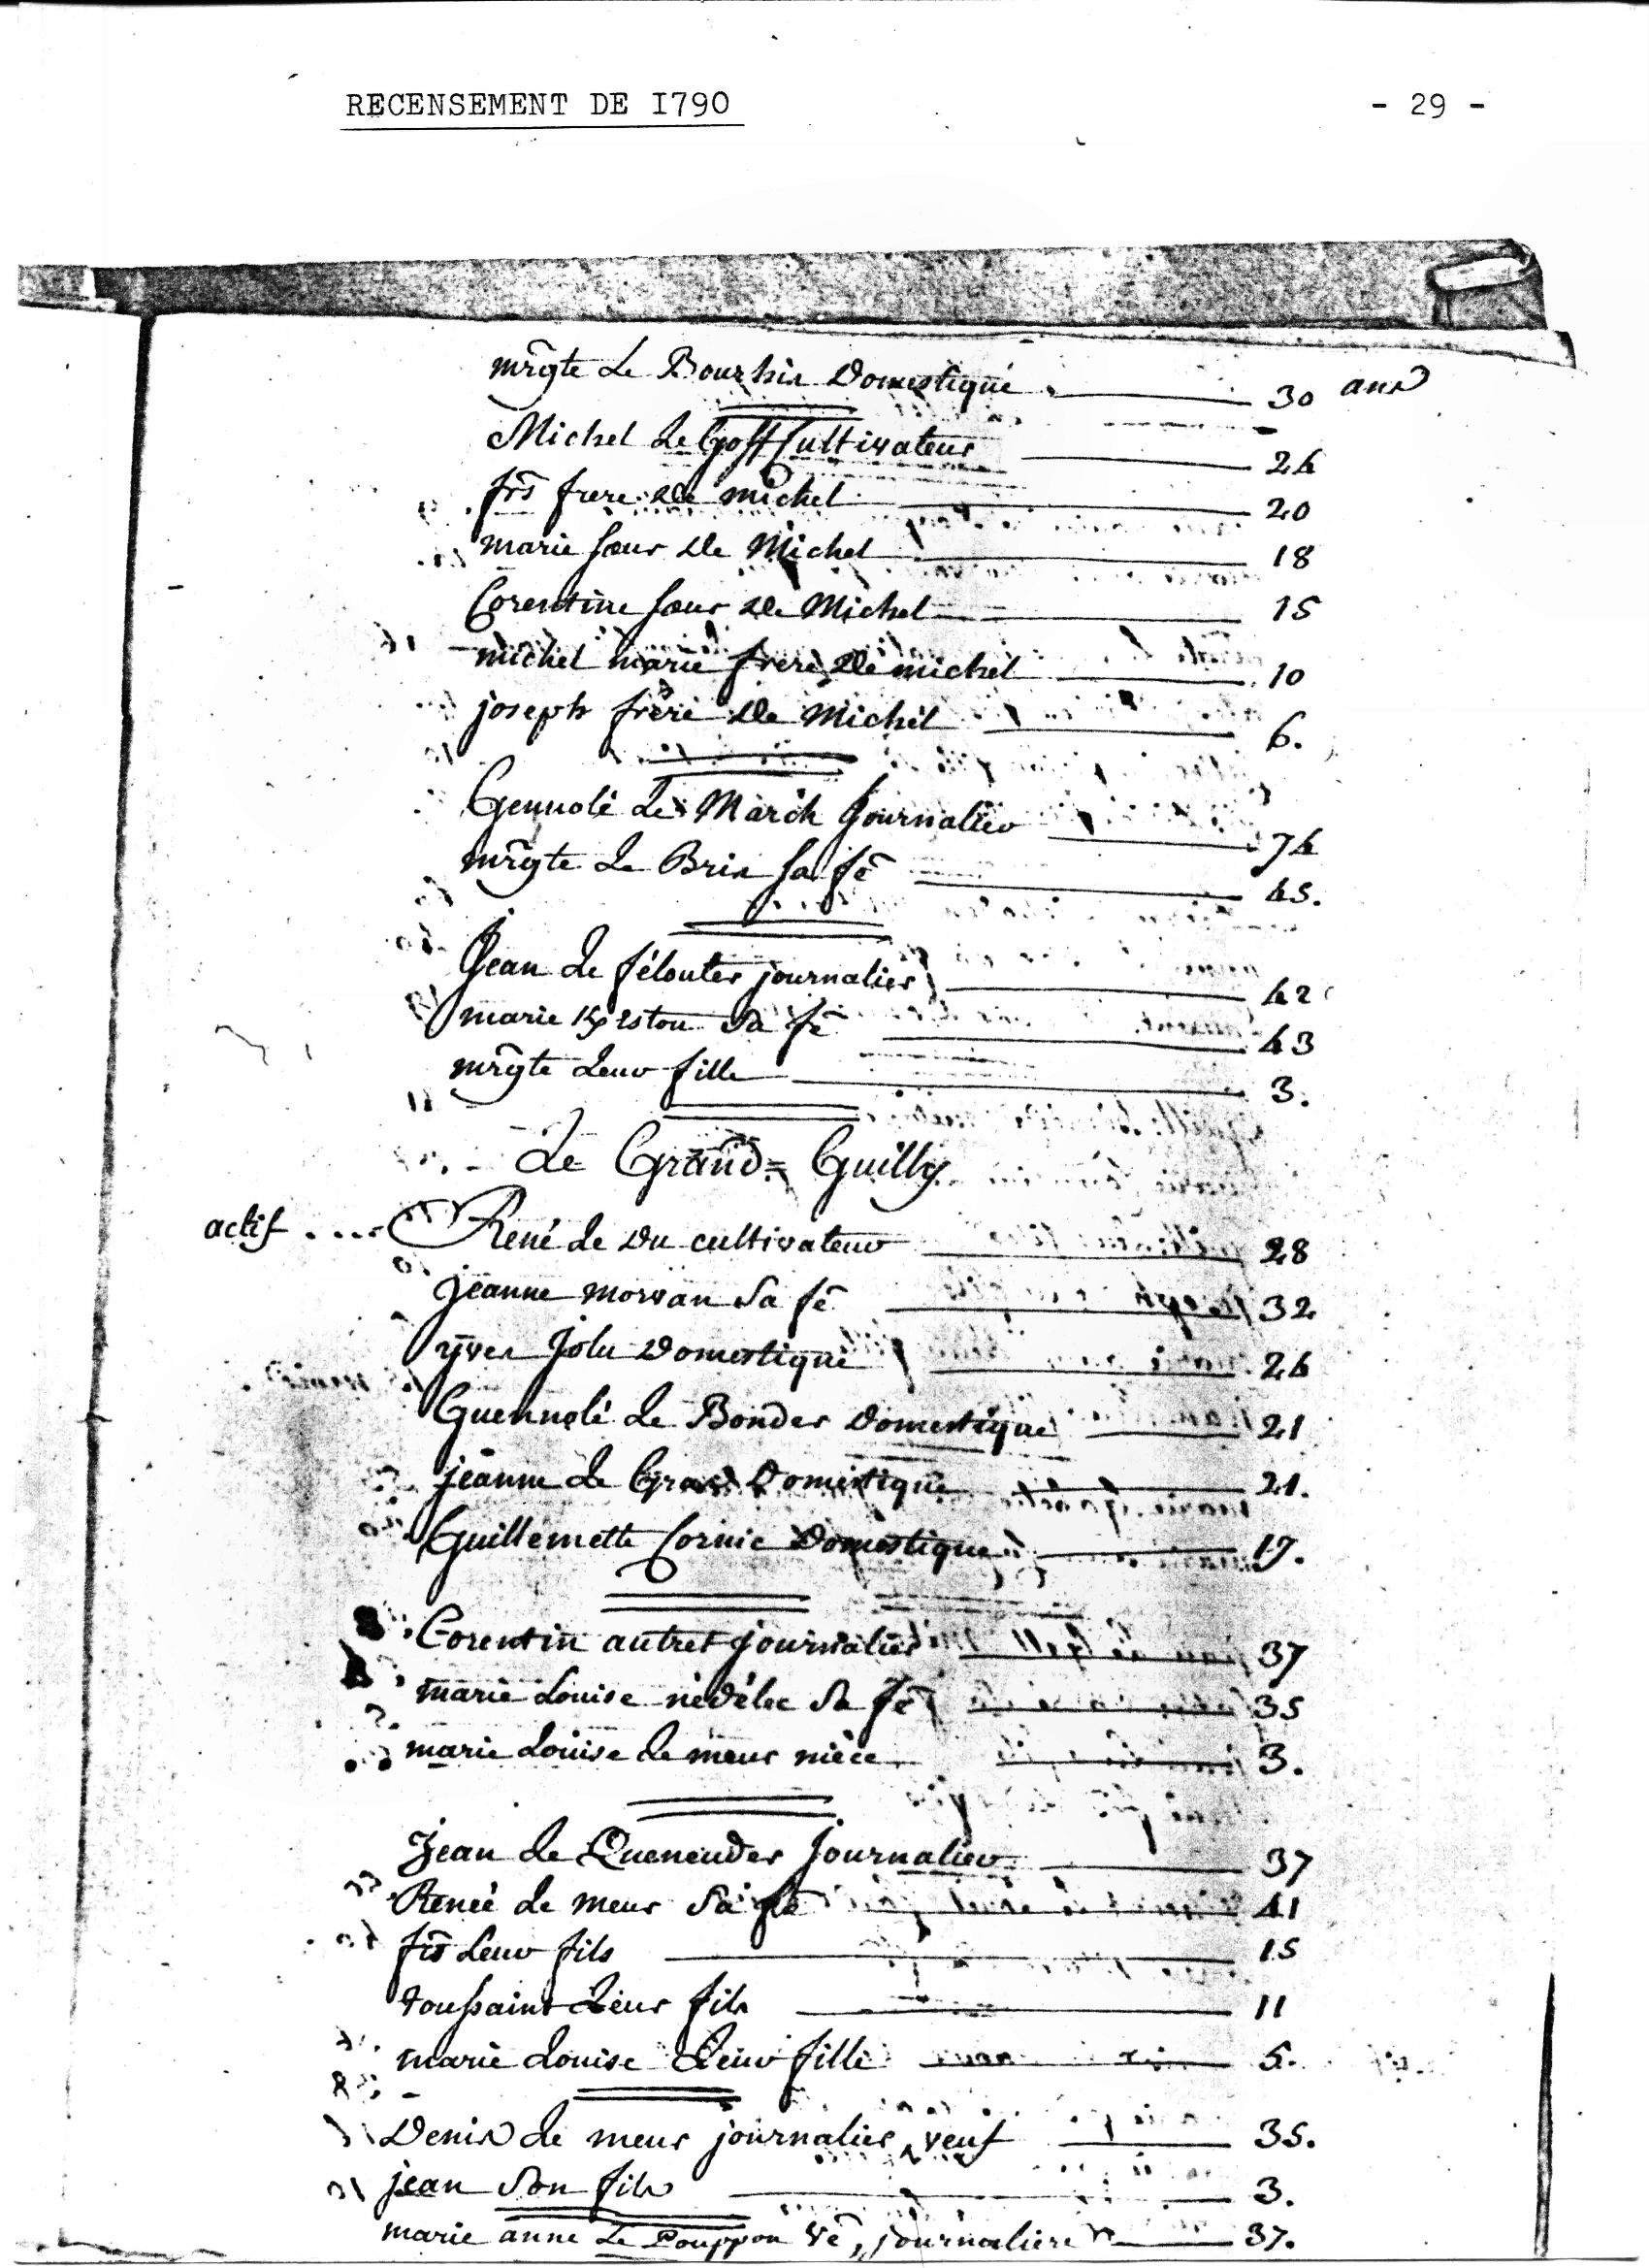 RECENSEMENT DE I790 - 29 -
mrgte Le Bourhis Domestique 30 ans
Michel Le Goff Cultivateur 24
frs frere de michel 20
marie soeur de Michel 18
Corentine soeur de Michel 15
michel marie frere de michel 10
joseph frere de Michel 6.
Gennolé Le March journalier 74
mrgte Le Bris sa fe 45.
Jean Le félouter journalier 42
marie sa fe 43
mrgte Leur fille 3.
Le Grand = Guilly
actif .... René Le Du cultivateur 28
jeanne morvan sa fe 32
yves Jolu Domestique 24
Guennolé Le Bonder Domestique 21
jeanne Le Grand Domestique 21.
Guillemette Cornic Domestique 17.
Corentin autret journalier 37
marie Louise nédélec sa fe 35
marie Louise Le meur nièce 3.
Jean Le Queneuder Journalier 37
Renée Le meur sa fe 41
frs Leur fils 15
toussaint Leur fils 11
marie Louise Leur fille 5.
Denis Le meur journalier, veuf 35.
jean son fils 3.
marie anne Le Pouppon ve, journaliere 37.